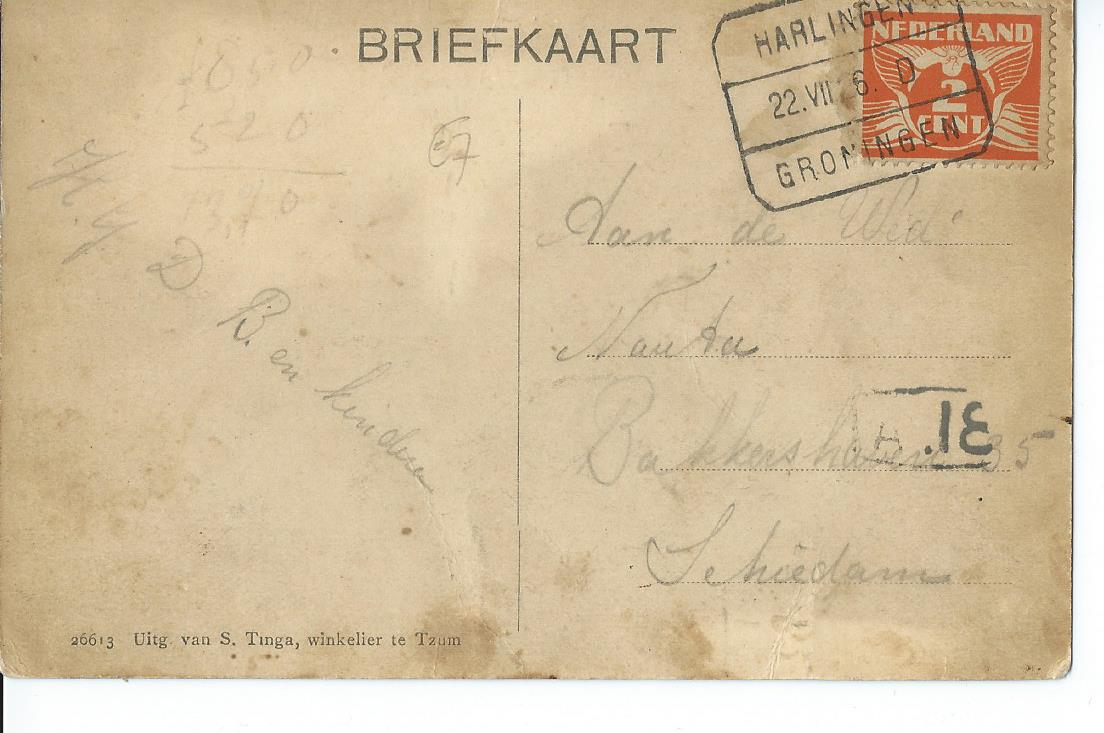 BRIEFKAART
HARLINGEN
22.VII 6. D
GRONINGEN
NEDERLAND
2
CENT
5 2 0
Aan de Wed
Nauta
Bakkershaven 35
Schiedam
D. B. en kinderen
26613 Uitg. van S. Tinga, winkelier te Tzum